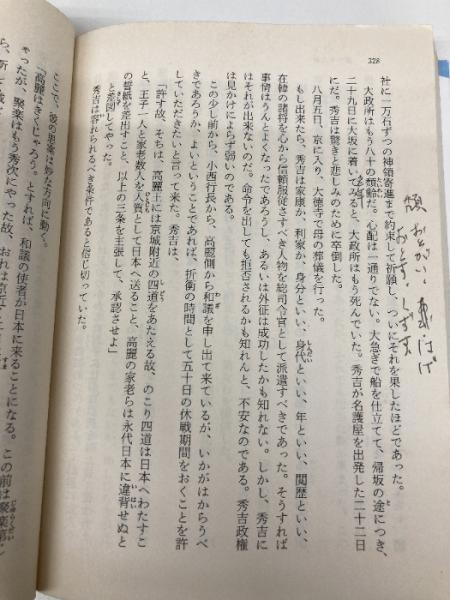 328
社に一万石ずつの神領寄進まで約束して祈願し、ついにそれを果したほどであった。
大政所はもう八十の頽齢だ。心配は一通りでない。大急ぎで船を仕立てて、帰坂の途につき、
二十九日に大坂に着いてみると、大政所はもう死んでいた。秀吉が名護屋を出発した二十二日
にだ。秀吉は驚きと悲しみのために卒倒した。
八月五日、京に入り、大徳寺で母の葬儀を行った。
もし出来たら、秀吉は家康か、利家か、身分といい、身代といい、年といい、閲歴といい、
在韓の諸将を心から信頼服従さすべき人物を総司令官として派遣すべきであった。そうすれば
事情はうんとよくなったであろうし、あるいは外征は成功したかも知れない。しかし、秀吉に
はそれが出来ないのだ。命令を出しても拒否されるかも知れんと、不安なのである。秀吉政権
は見かけによらず弱いのである。
この少し前から、小西行長から、高麗側から和議を申し出て来ているが、いかがはからうべ
きであろうか、よいということであれば、折衝の時間として五十日の休戦期間をおくことを許
していただきたいと言って来た。秀吉は、
「許す故、そちは、高麗王には京城附近の四道をあたえる故、のこり四道は日本へわたすこ
と、王子一人と家老数人を人質として日本へ送ること、高麗の家老らは永代日本に違背せぬと
の誓紙を差出すこと、以上の三条を主張して、承認させよ」
と差図してやった。
秀吉は容れられるべき条件であると信じ切っていた。
ここで、彼の思案は妙な方向に動く。
「高麗はきくじゃろう。とすれば、和議の使者が日本に来ることになる。この前は聚楽第で
やったが、聚楽はもう秀次にやった故、おれは京近